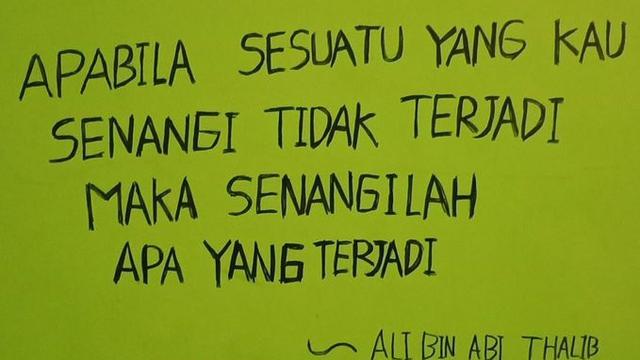 APABILA SESUATU YANG KAU
SENANGI TIDAK TERJADI
MAKA SENANGILAH
APA YANG TERJADI
~ ALI BIN ABI THALIB